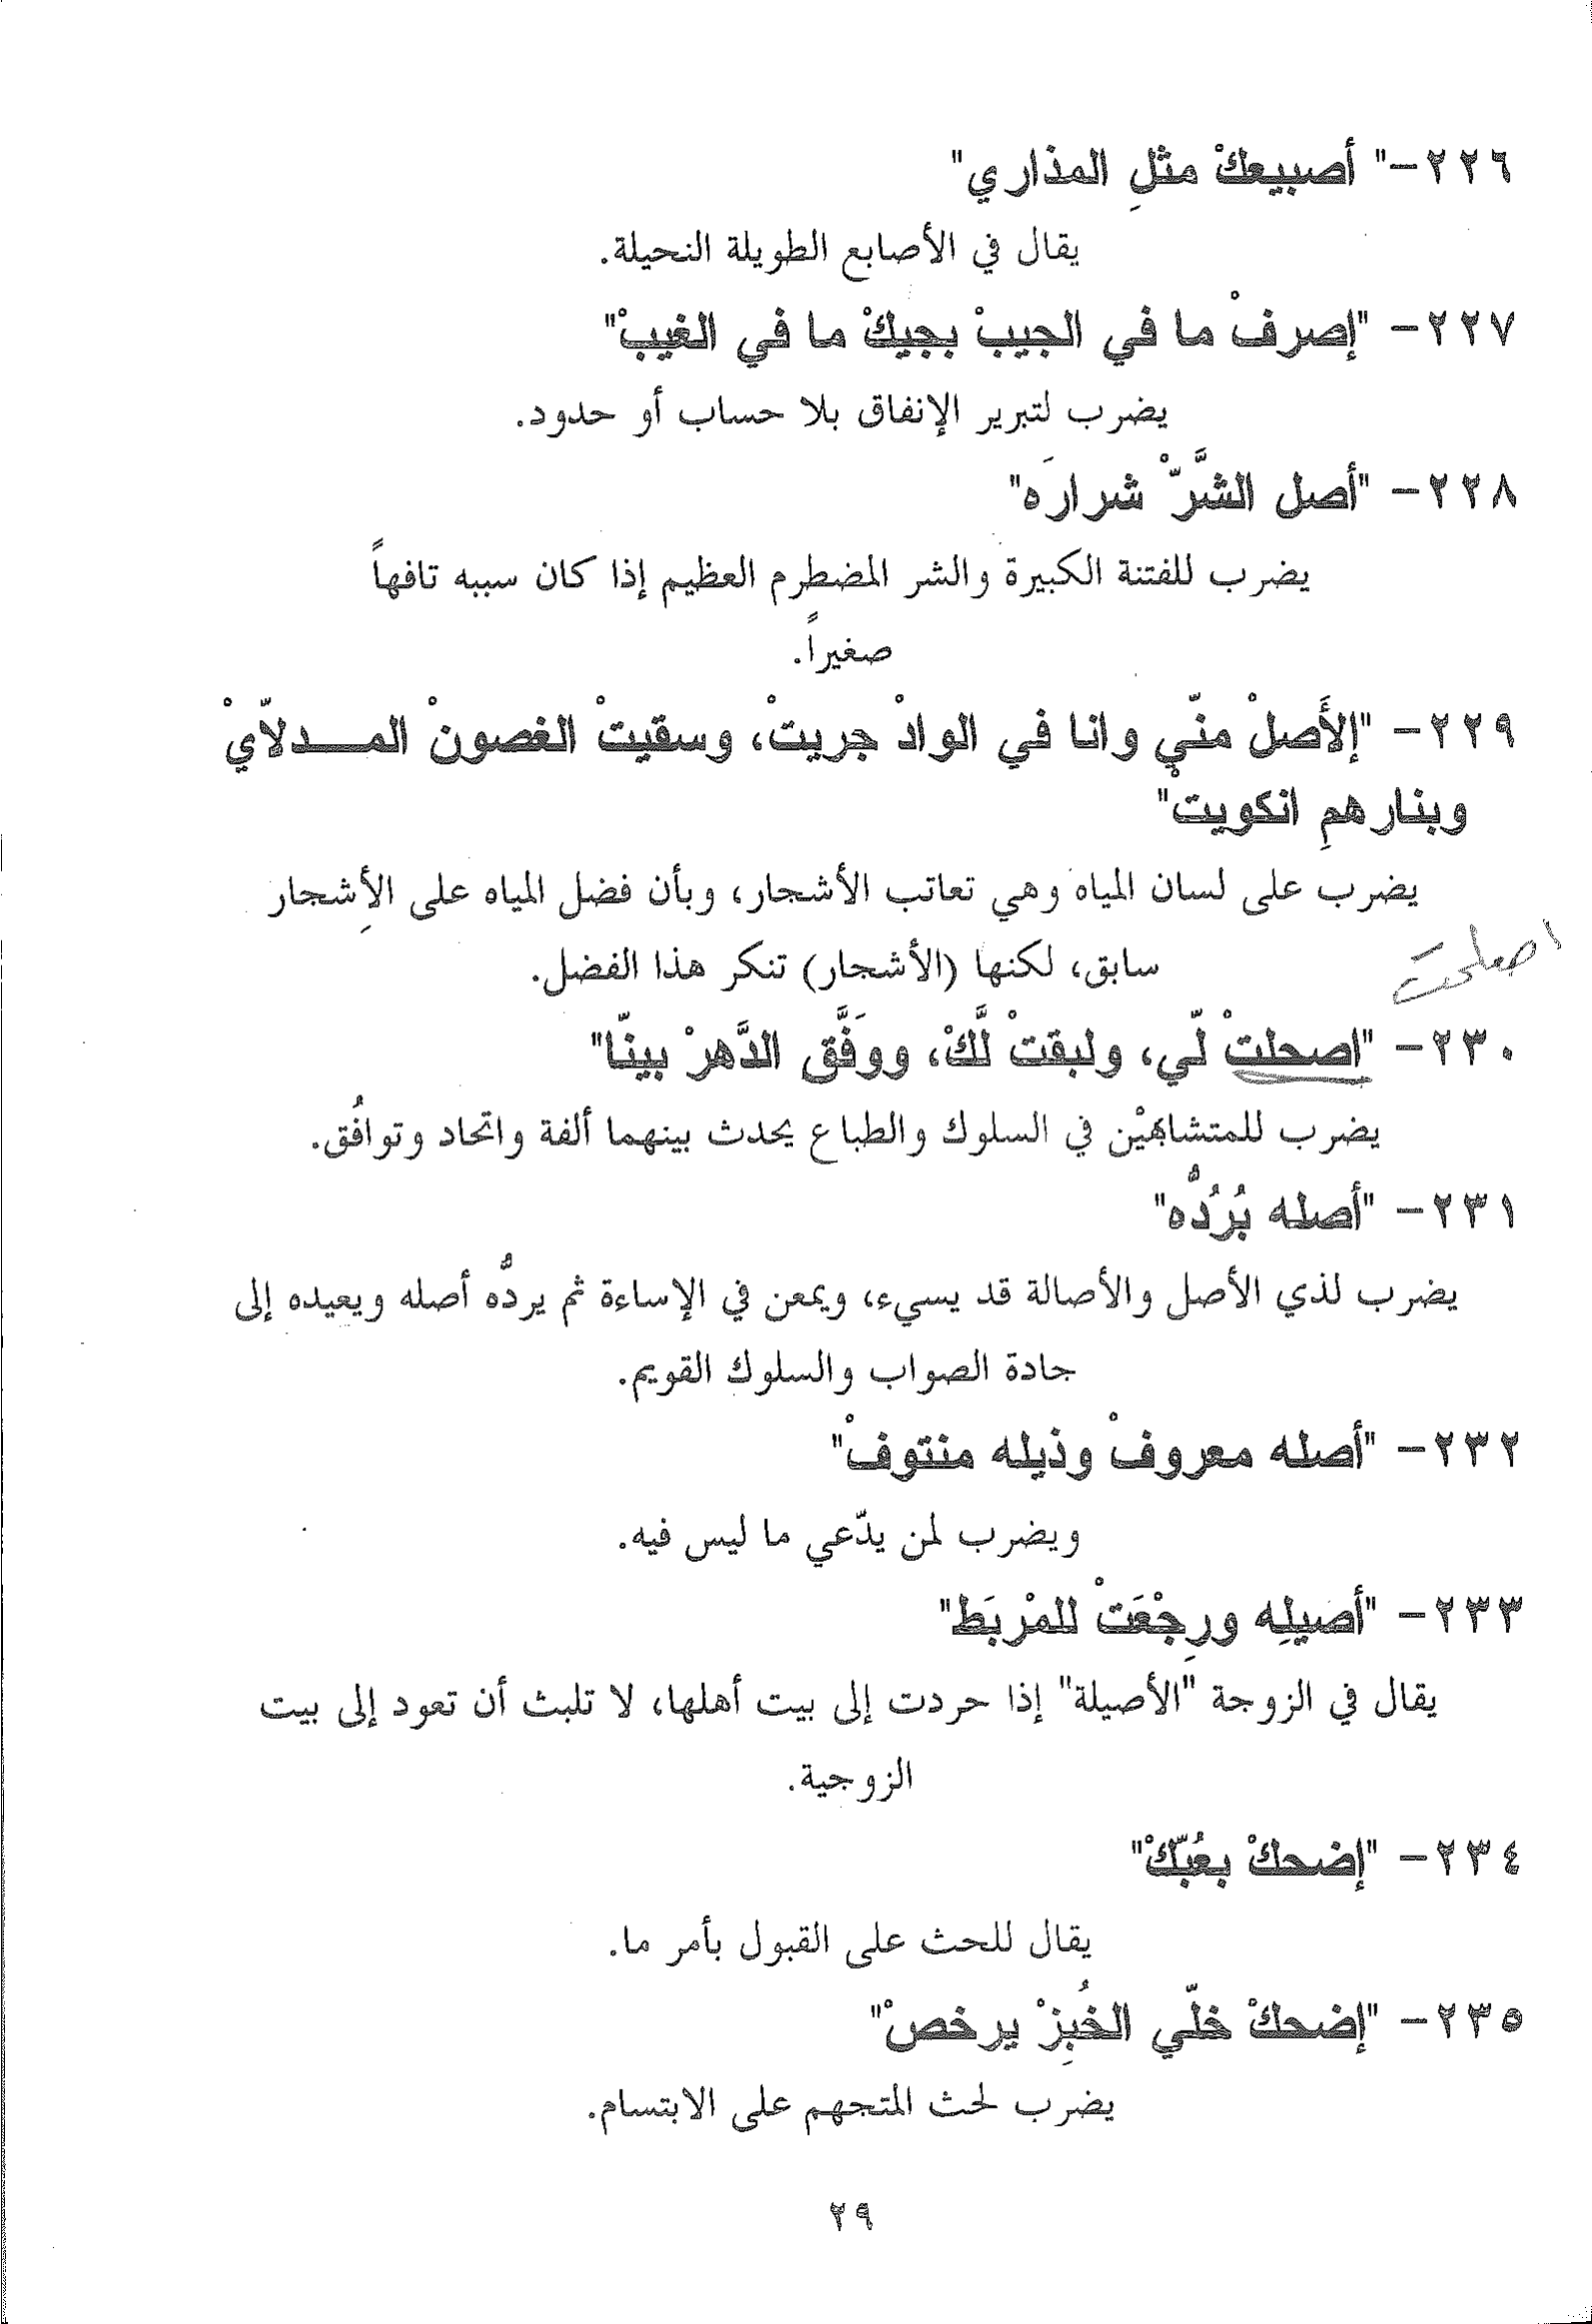 ٢٢٦-" أصبيعكْ مثلِ المذاري"
يقال في الأصابع الطويلة النحيلة.
٢٢٧- "إصرفْ ما في الجيبْ بجيكْ ما في الغيبْ"
يضرب لتبرير الإنفاق بلا حساب أو حدود.
٢٢٨- "أصل الشَّرّْ شرارَه"
يضرب للفتنة الكبيرة والشر المضطرم العظيم إذا كان سببه تافهاً
صغيراً.
٢٢٩- "إلأَصلْ منّي وانا في الوادْ جريتْ، وسقيتْ الغصونْ المـــدلاّيْ
وبنارهمِ انكويتْ"
يضرب على لسان المياه وهي تعاتب الأشجار، وبأن فضل المياه على الأِشجار
سابق، لكنها (الأشجار) تنكر هذا الفضل.
اصطحت
٢٣٠- "إصحلتْ لّي، ولبقتْ لَّكْ، ووَفَّق الدَّهرْ بينّا"
يضرب للمتشابهيْن في السلوك والطباع يحدث بينهما ألفة واتحاد وتوافُق.
٢٣١- "أصله بُرُدُّه"
يضرب لذي الأصل والأصالة قد يسيء، ويمعن في الإساءة ثم يردُّه أصله ويعيده إلى
جادة الصواب والسلوك القويم.
٢٣٢- "أصله معروفْ وذيله منتوفْ"
ويضرب لمن يدّعي ما ليس فيه.
٢٣٣- "أصيلِه ورِجْعَتْ للمْربَط"
يقال في الزوجة "الأصيلة" إذا حردت إلى بيت أهلها، لا تلبث أن تعود إلى بيت
الزوجية.
٢٣٤- "إضحكْ بعُبّكْ"
يقال للحث على القبول بأمر ما.
٢٣٥- "إضحكْ خلّي الخُبِزْ يرخصْ"
يضرب لحث المتجهم على الابتسام.
٢٩